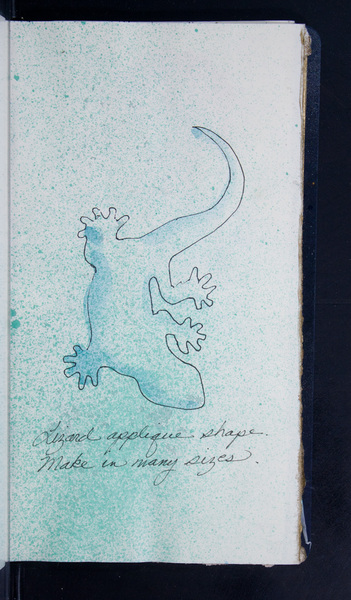 Lizard applique shape.
Make in many sizes.